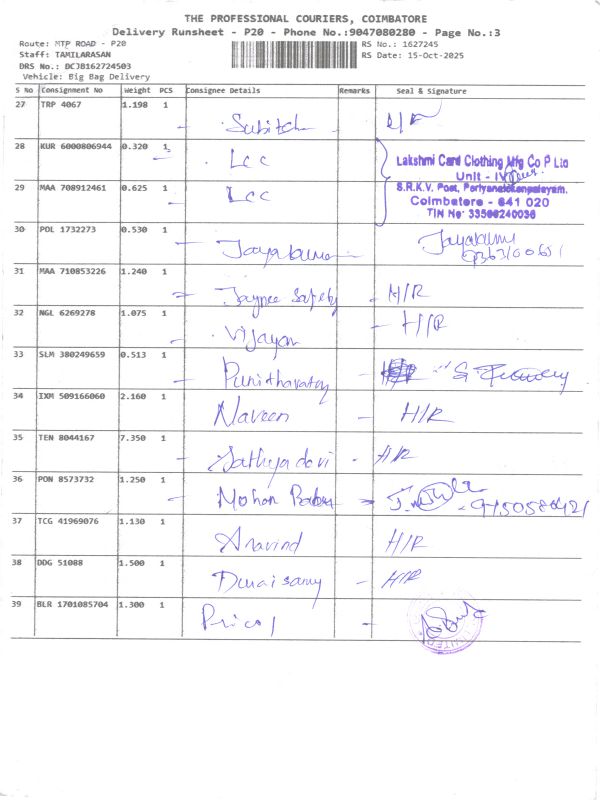 THE PROFESSIONAL COURIERS, COIMBATORE
Delivery Runsheet - P20 - Phone No.:9047080280 - Page No.:3
Route: MTP ROAD - P20 RS No.: 1627245
Staff: TAMILARASAN RS Date: 15-Oct-2025
DRS No.: BCJB162724503
Vehicle: Big Bag Delivery
S No Consignment No Weight PCS Consignee Details Remarks Seal & Signature
27 TRP 4067 1.198 1
Subitch H/R
28 KUR 6000806944 0.320 1
Lcc
Lakshmi Card Clothing Mfg Co P Ltd
Unit - IV
29 MAA 708912461 0.625 1
Lcc
S.R.K.V. Post, Periyanaickenpalayam.
Coimbatore - 641 020
TIN No: 33500240036
30 POL 1732273 0.530 1
Jayakumar Jayakumr
31 MAA 710853226 1.240 1
Jaynee Safety - H/R
32 NGL 6269278 1.075 1
Vijayan - H/R
33 SLM 380249659 0.513 1
Punithavathy
34 IXM 509166060 2.160 1
Naveen - H/R
35 TEN 8044167 7.350 1
Sathya devi - H/R
36 PON 8573732 1.250 1
Mohan Babu
37 TCG 41969076 1.130 1
Aravind H/R
38 DDG 51088 1.500 1
Duraisamy - H/R
39 BLR 1701085704 1.300 1
Pricol -